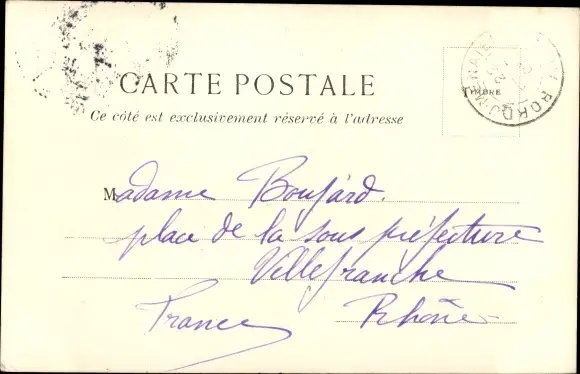 CARTE POSTALE
Ce côté est exclusivement réservé à l'adresse
TIMBRE
Madame Boujard.
place de la sous préfecture
Villefranche
France Rhône